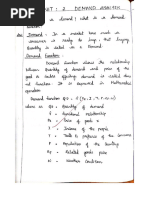 UNIT : 2 DEMAND ANALYSIS
is a demand? what is a demand
Ans: Demand : In a market how much is
is ready to buy, that buying
Quantity is called as a Demand.
Demand function:
Demand function shows the relationship
between Quantity of demand and price of the
goods & factor effecting demand is called demand
function. It is Mathematical
operation.
Demand function QD = f (Px, I, T, P, R, W)
where as QD = Quantity of demand
f = functional relationship
Px = Price of goods x
I = Income of the people
T = Taste & preference of the consumer
P = Population of the country
R = Related goods price
W = Weather Conditions